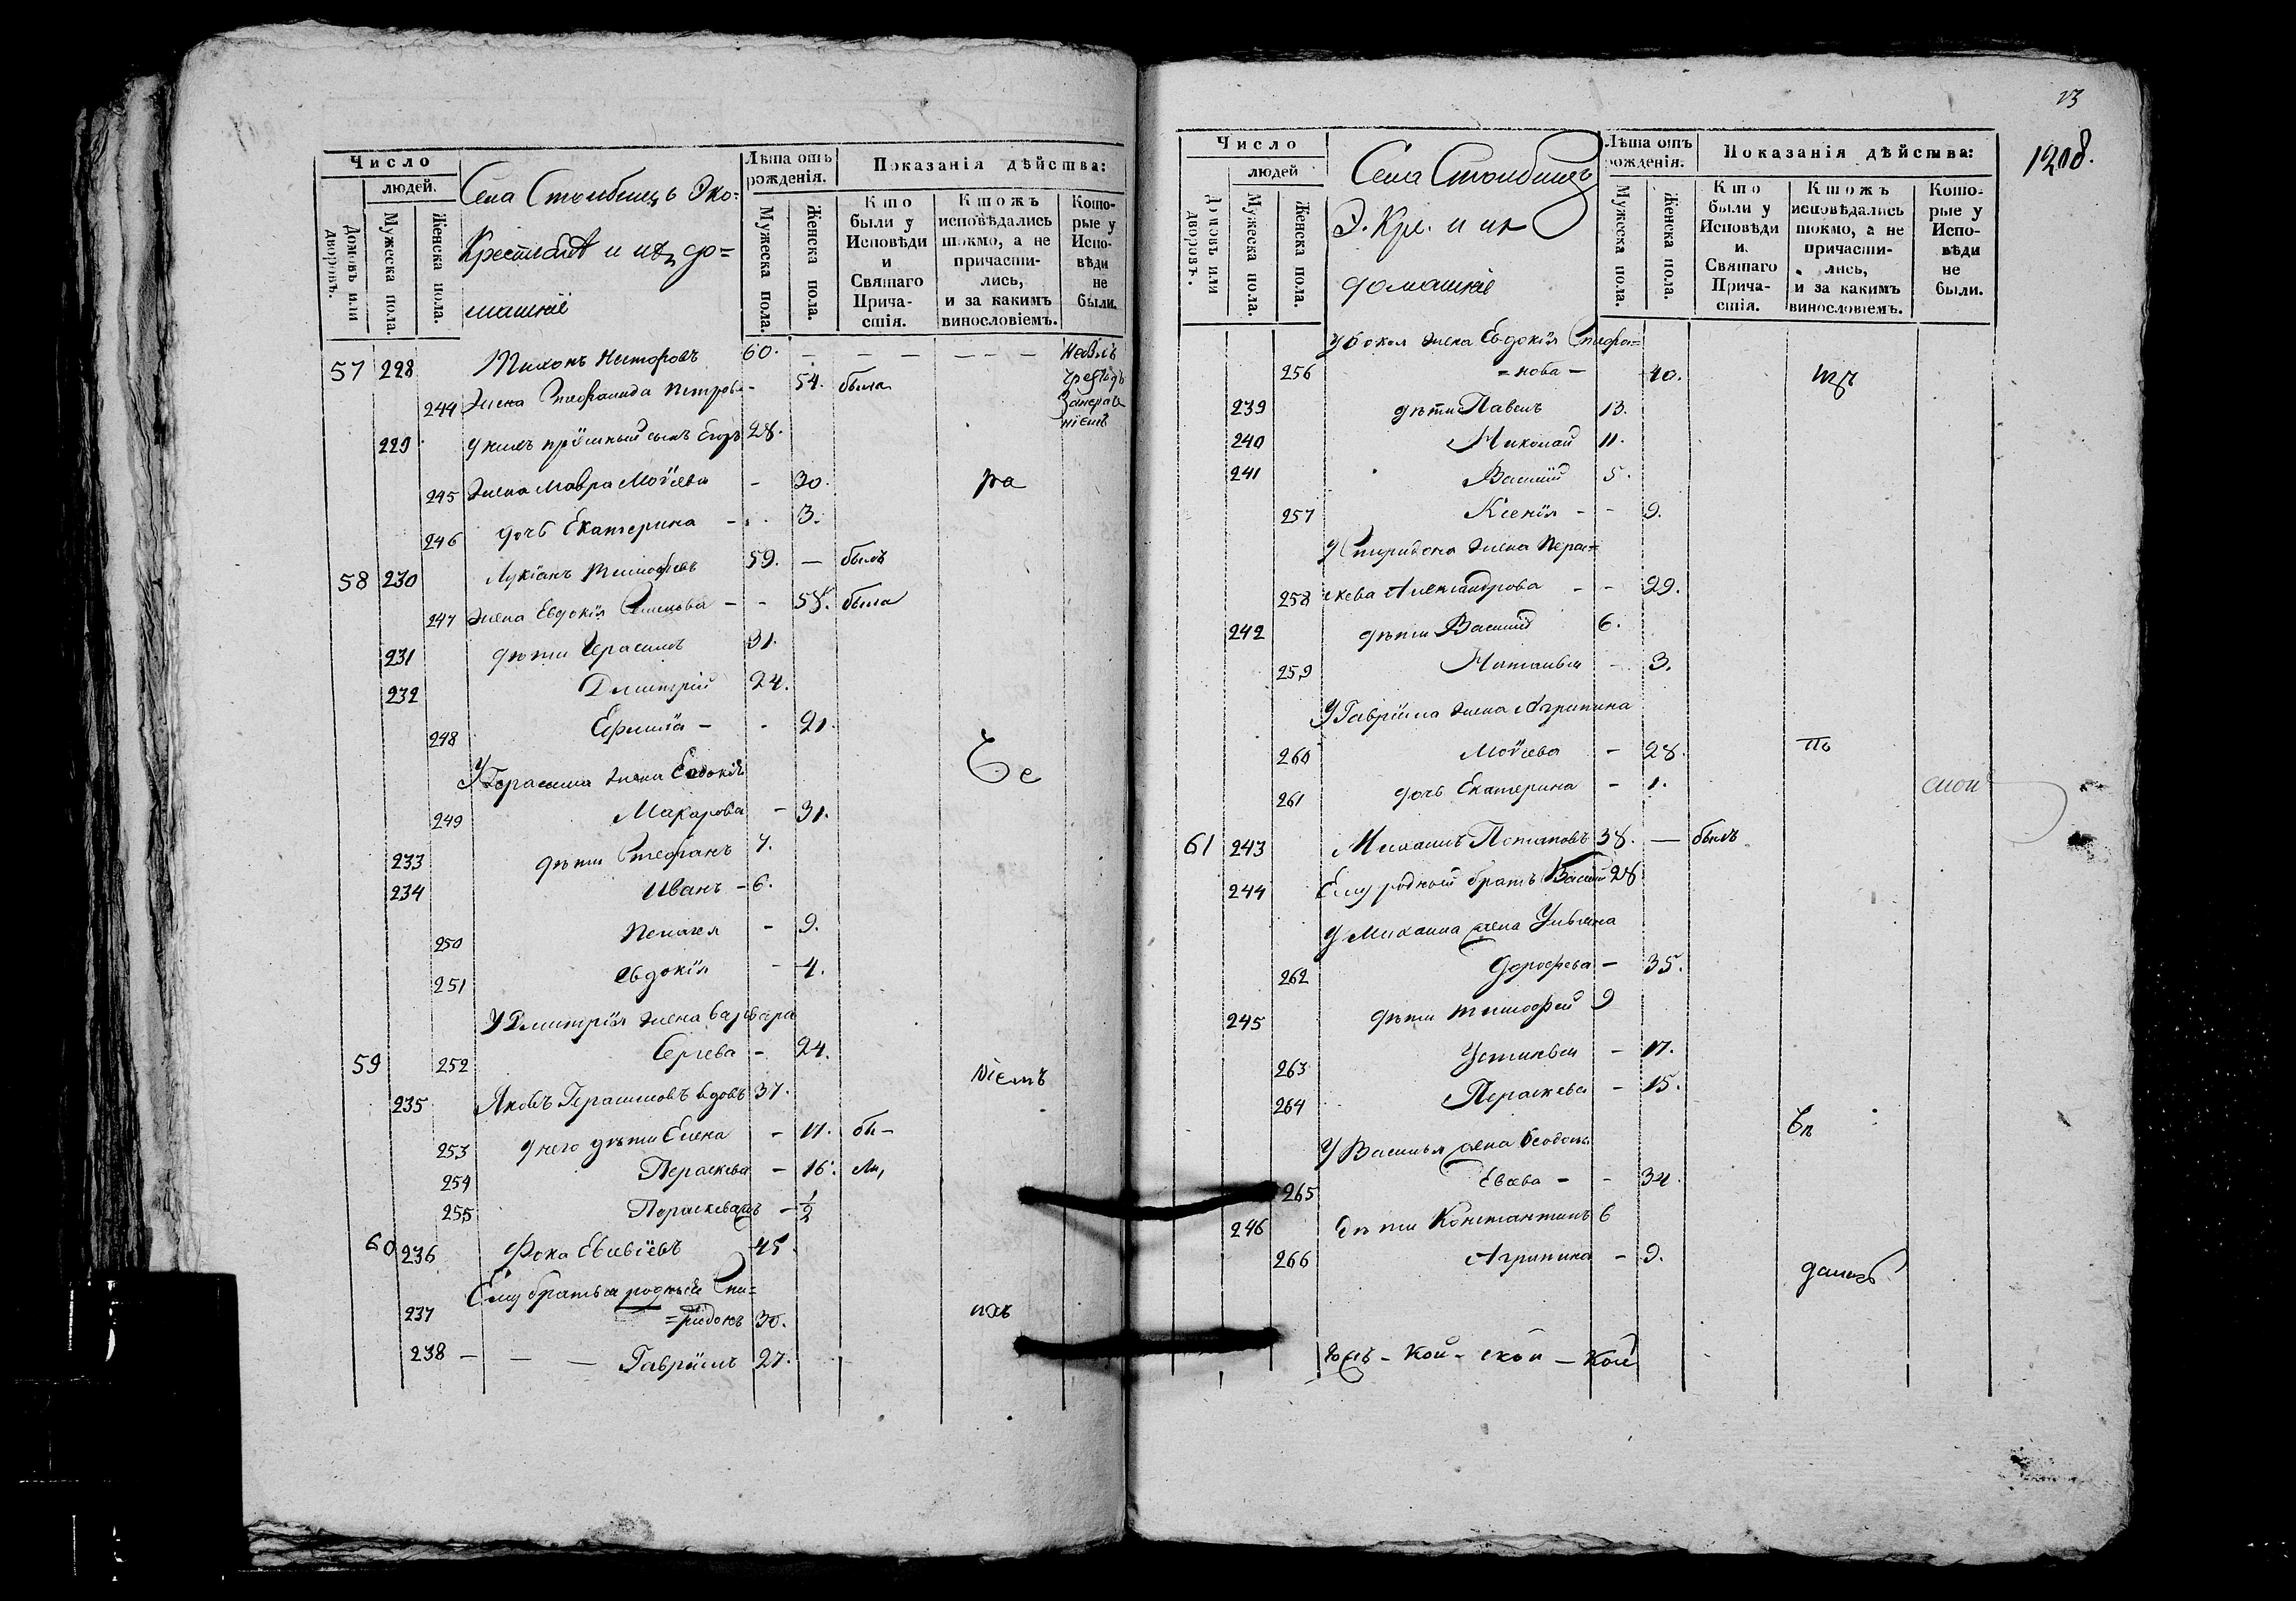 Число
людей.
Домовъ или дворовъ.
Мужеска пола.
Женска пола.
Села Столбищъ Эко=
Крестьянѣ и ихъ до=
машніе
Лѣта отъ рожденія.
Мужеска пола.
Женска пола.
Показанія дѣйства:
Кто были у Исповѣди и Святаго Прича-стія.
Ктожъ исповѣдались токмо, а не причасти-лись, и за какимъ винословіемъ.
Кото-рые у Испо-вѣди не были.
57 228 Тихонъ Никифоровъ 60. — — — — — —
244 Жена Стефанида Петрова - 54. была
229 У нихъ пріемный сынъ Егоръ 28.
245 Жена Мавра Моѵсеева - 30. ра
246 дочь Екатерина - 3.
58 230 Лукіанъ Тимофеевъ 59. — былъ
247 Жена Евдокія - - 58. была
231 дѣти Герасимъ 31.
232 Димитрій 24.
248 Ефимія - - 21.
У Герасима жена Евдокія
249 Макарова - 31.
233 дѣти Стефанъ 7.
234 Иванъ - 6.
250 Пелагея - 9.
251 Евдокія - 4.
У Димитрія жена Варвара
59 252 Сергеева - 24.
ніемъ
235 Яковъ Герасимовъ вдовъ 37.
253 У него дѣти Елена - 17. бы-
254 Параскева - 16. ли,
255 Параскева - ½
60 236 Фока 45.
Ему братья родныи Спи=
237 =ридонъ 30.
238 — — — Гавріилъ 27.
13
1208.
Число
людей
Домовъ или дворовъ.
Мужеска пола.
Женска пола.
Села Столбищъ
Э. Кре. и их
домашніе
Лѣта отъ рожденія.
Мужеска пола.
Женска пола.
Показанія дѣйства:
Кто были у Исповѣди и Святаго Прича-стія.
Ктожъ исповѣдались токмо, а не причасти-лись, и за какимъ винословіемъ.
Кото-рые у Испо-вѣди не были.
У Фоки жена Евдокія Стефа=
256 =нова - 40.
239 дѣти Павелъ 13.
240 Николай 11.
241 Василій 5.
257 Ксенія - - 9.
У Спиридона жена Парас=
258 кева Александрова - - 29.
242 дѣти Василій 6.
259 Наталья - 3.
У Гавріила жена Агрипина
260 Моѵсеева - 28. по
261 дочь Екатерина - 1.
61 243 Михаилъ Потаповъ 38. — былъ
244 Ему родной братъ Василій 28
У Михаила жена Ульяна
262 Дорофеева - 35.
245 дѣти Тимофей 9
263 Устинья - 17.
264 Параскева - 15.
У Василья жена Феодосья
265 - - 34.
246 дѣти Константинъ 6
266 Агрипина - 9.